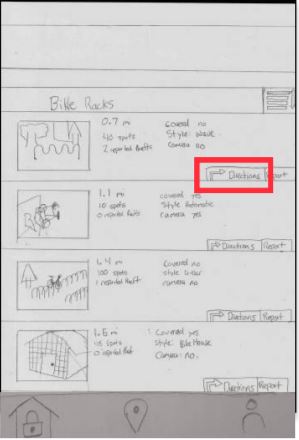 Bike Racks
0.7 mi
40 spots
2 reported thefts
Covered no
Style: wave
Camera no
Directions Report
1.1 mi
10 spots
0 reported thefts
covered yes
Style Automatic
camera yes
Directions Report
100 spots
1 reported theft
Covered no
style
camera no
Directions Report
1.6 mi
spots
0 reported theft
Covered yes
Style: Bike House
Camera: no.
Directions Report